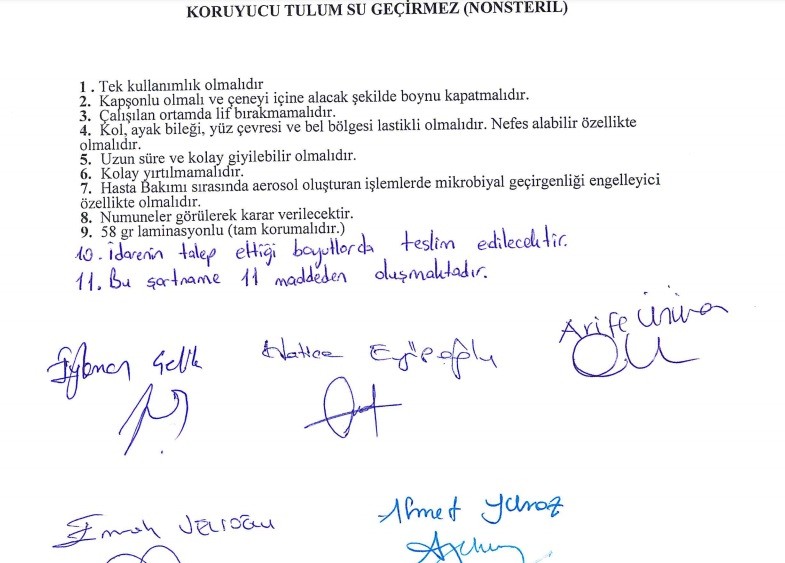 KORUYUCU TULUM SU GEÇİRMEZ (NONSTERİL)
1 . Tek kullanımlık olmalıdır
2. Kapşonlu olmalı ve çeneyi içine alacak şekilde boynu kapatmalıdır.
3. Çalışılan ortamda lif bırakmamalıdır.
4. Kol, ayak bileği, yüz çevresi ve bel bölgesi lastikli olmalıdır. Nefes alabilir özellikte
olmalıdır.
5. Uzun süre ve kolay giyilebilir olmalıdır.
6. Kolay yırtılmamalıdır.
7. Hasta Bakımı sırasında aerosol oluşturan işlemlerde mikrobiyal geçirgenliği engelleyici
özellikte olmalıdır.
8. Numuneler görülerek karar verilecektir.
9. 58 gr laminasyonlu (tam korumalıdır.)
10. idarenin talep ettiği boyutlarda teslim edilecektir.
11. Bu şartname 11 maddeden oluşmaktadır.
Hatice Eyüpoğlu
Arife
Ahmet Yavaz